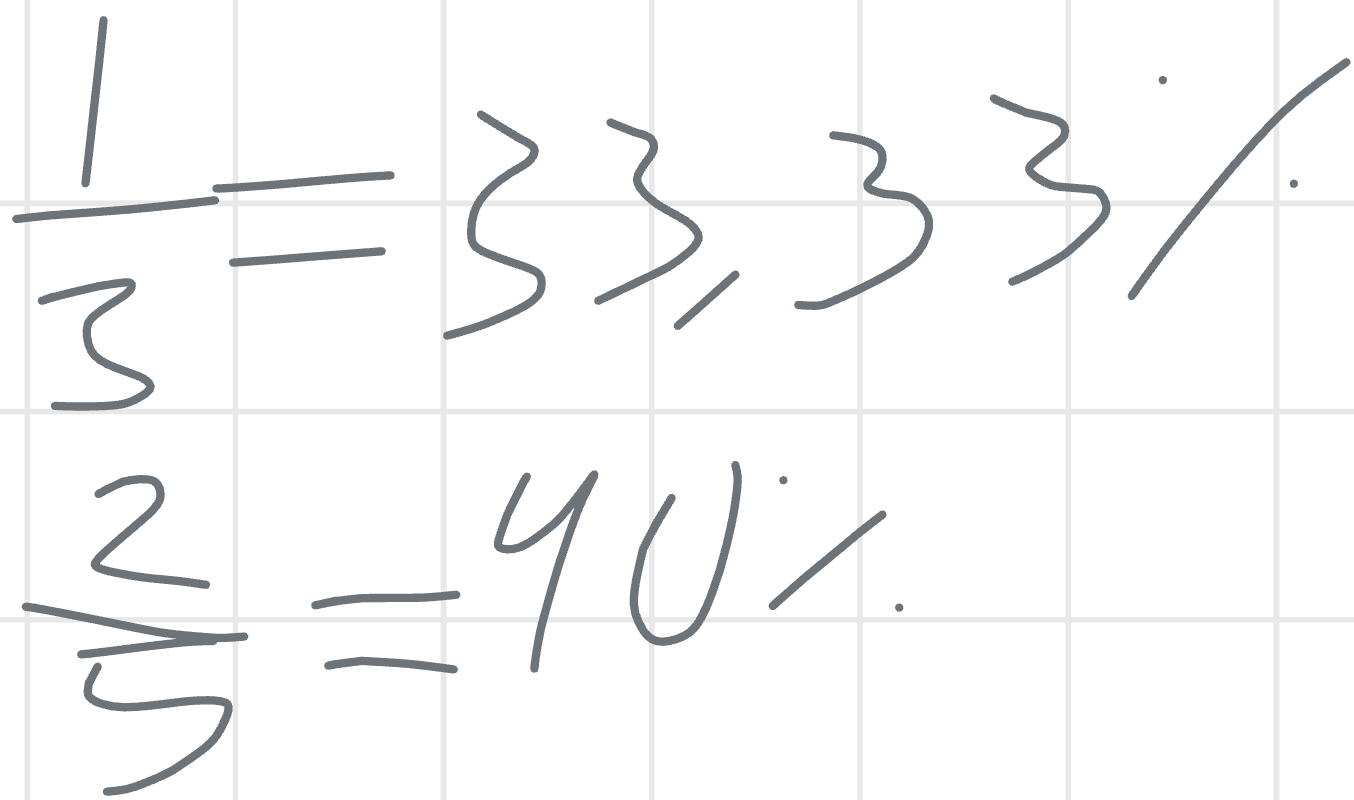 1/3 = 33,33%
2/5 = 40%